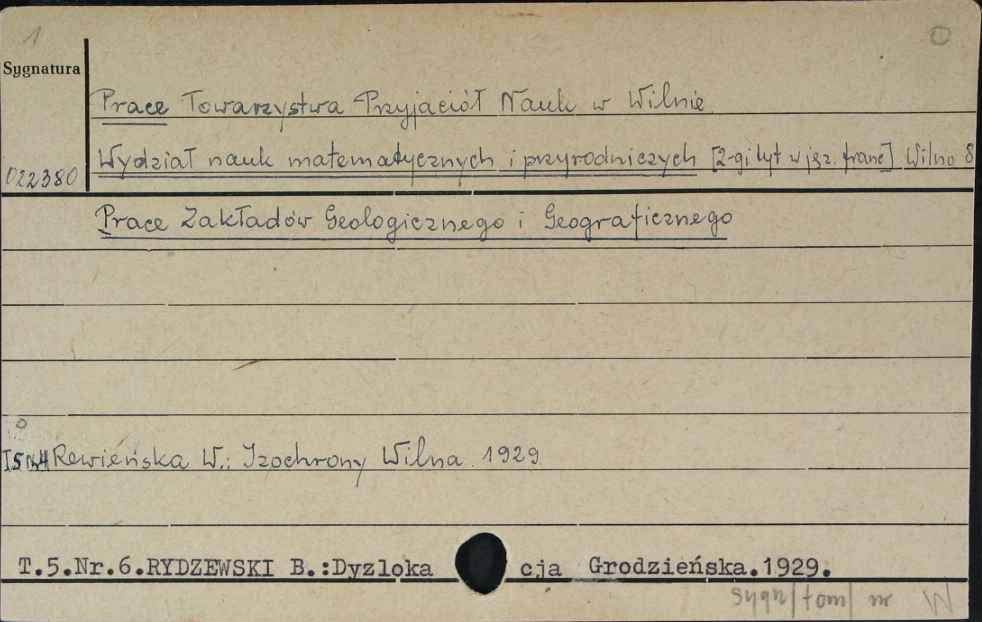 1
Sygnatura
Prace Towarzystwa Przyjaciół Nauk w Wilnie
Wydział nauk matematycznych i przyrodniczych [2-gi tyt w jęz. franc] Wilno 8
022380
Prace Zakładów Geologicznego i Geograficznego
T.5 Nr.4 Rewieńska W.: Izochrony Wilna 1929
T.5.Nr.6.RYDZEWSKI B.:Dyzloka cja Grodzieńska.1929.
sygn/tom/ nr W